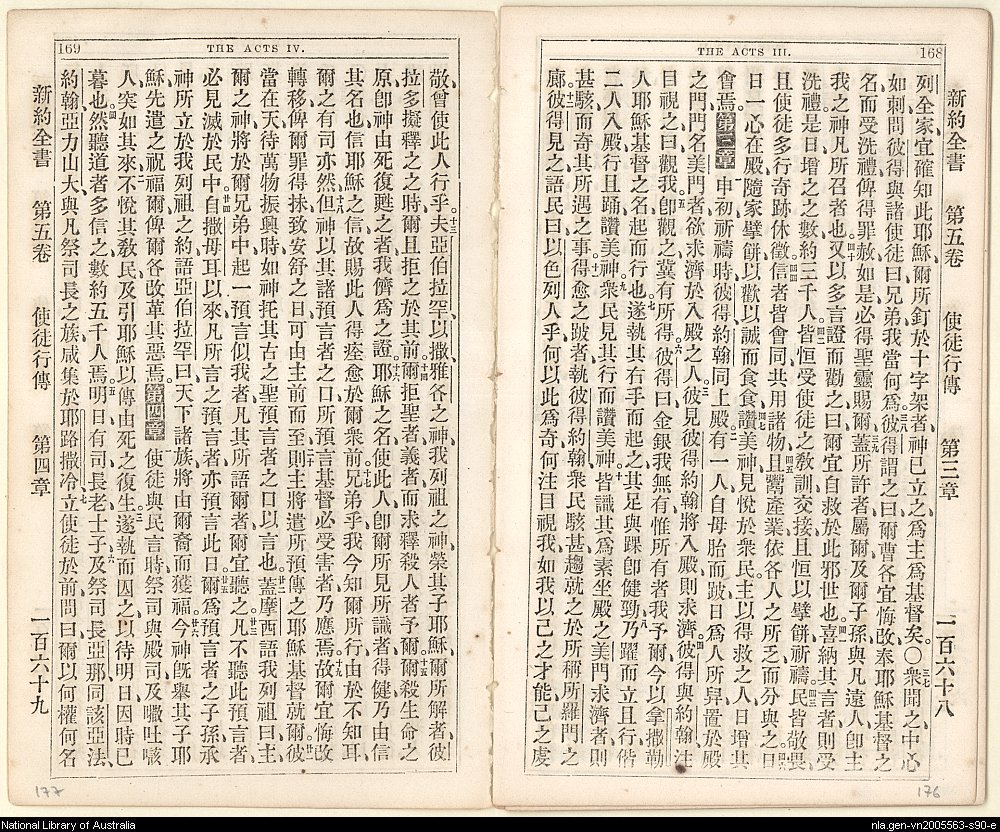 168
THE ACTS III.
新約全書 第五卷 使徒行傳 第三章 一百六十八
列全家宜確知此耶穌爾所釘於十字架者神已立之爲主爲基督矣。○衆聞之中心
如刺問彼得與諸使徒曰兄弟我當何爲彼得謂之曰爾曹各宜悔改奉耶穌基督之
名而受洗禮俾得罪赦如是必得聖靈賜爾蓋所許者屬爾及爾子孫與凡遠人卽主
我之神凡所召者也又以多言證而勸之曰爾宜自救於此邪世也喜納其言者則受
洗禮是日增之之數約三千人皆恒受使徒之教訓交接且恒以擘餅祈禱民皆敬畏
且使徒多行奇跡休徵信者皆會同共用諸物且鬻產業依各人之所乏而分與之日
日一心在殿隨家擘餅以歡以誠而食食讚美神見悅於衆民主以得救之人日增其
會焉第三章 申初祈禱時彼得約翰同上殿有一人自母胎而跛日爲人所舁置於殿
之門門名美門者欲求濟於入殿之人彼見彼得約翰將入殿則求濟彼得與約翰注
目視之曰觀我卽觀之冀有所得彼得曰金銀我無有惟所有者我予爾今以拿撒勒
人耶穌基督之名起而行也遂執其右手而起之其足與踝卽健勁乃躍而立且行偕
二人入殿行且踊讚美神衆民見其行而讚美神皆識其爲素坐殿之美門求濟者則
甚駭而奇其所遇之事得愈之跛者執彼得約翰衆民駭甚趨就之於所稱所羅門之
廊彼得見之語民曰以色列人乎何以此爲奇何注目視我如我以己之才能己之虔
176
169
THE ACTS IV.
敬曾使此人行乎夫亞伯拉罕以撒雅各之神我列祖之神榮其子耶穌爾所解者彼
拉多擬釋之之時爾且拒之於其前爾拒聖者義者而求釋殺人者予爾爾殺生命之
原卽神由死復甦之者我儕爲之證耶穌之名使此人卽爾所見所識者得健乃由信
其名也信耶穌之信故賜此人得痊愈於爾衆前兄弟乎我今知爾所行由於不知耳
爾之有司亦然但神以其諸預言者之口所預言基督必受害者乃應焉故爾宜悔改
轉移俾爾罪得抹致安舒之日可由主前而至則主將遣所預傳之耶穌基督就爾彼
當在天待萬物振興時如神托其古之聖預言者之口以言也蓋摩西語我列祖曰主
爾之神將於爾兄弟中起一預言似我者凡其所語爾者爾宜聽之凡不聽此預言者
必見滅於民中自撒母耳以來凡所言之預言者亦預言此日爾爲預言者之子孫承
神所立於我列祖之約語亞伯拉罕曰天下諸族將由爾裔而獲福今神旣舉其子耶
穌先遣之祝福爾俾爾各改革其惡焉第四章 使徒與民言時祭司與殿司及㘔吐㗒
人突如其來不悅其教民及引耶穌以傳由死之復生遂執而囚之以待明日因時已
暮也然聽道者多信之數約五千人焉明日有司長老士子及祭司長亞那同該亞法
約翰亞力山大與凡祭司長之族咸集於耶路撒冷立使徒於前問曰爾以何權何名
新約全書 第五卷 使徒行傳 第四章 一百六十九
177
National Library of Australia
nla.gen-vn2005563-s90-e